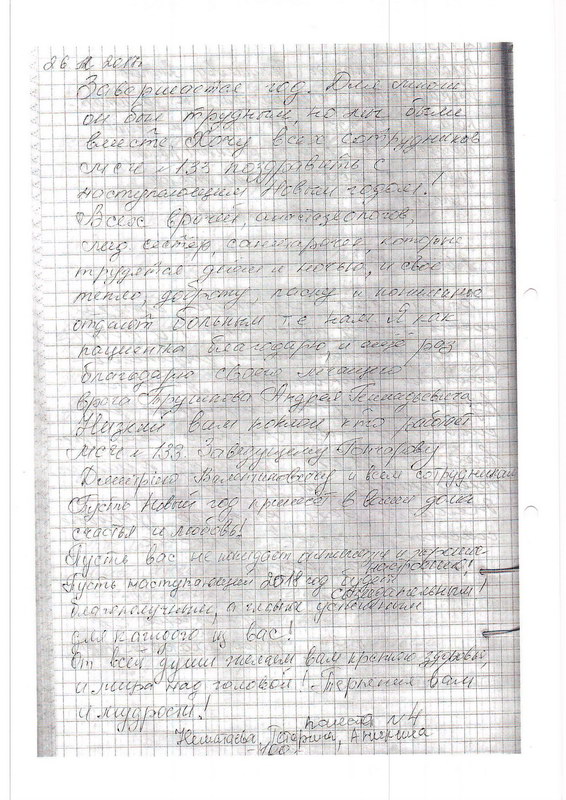 26 12 2017г.
Завершается год. Для многих
он был трудным, но мы были
вместе. Хочу всех сотрудников
МСЧ N 133 поздравить с
наступающим Новым годом!
Всех врачей,
мед сестер, санитарочек, которые
трудятся днем и ночью, и свое
тепло, доброту, ласку и понимание
отдают больным т.е. нам. Я как
пациентка благодарю, и ещё раз
благодарю своего лечащего
врача Андрея Геннадьевича.
Низкий вам поклон, кто работает
МСЧ N 133. Заведущему
Дмитрию Валентиновичу и всем сотрудникам
Пусть Новый год принесет в ваши дома
счастья и любовь!
Пусть вас не покидает оптимизм и хорошее
настроение!
Пусть наступающий 2018 год будет
созидательным!
благополучным, а главное успешным
для каждого из вас!
От всей души желаем вам крепкого здоровья,
и мира над головой! Терпения вам
и мудрости!
палата N 4